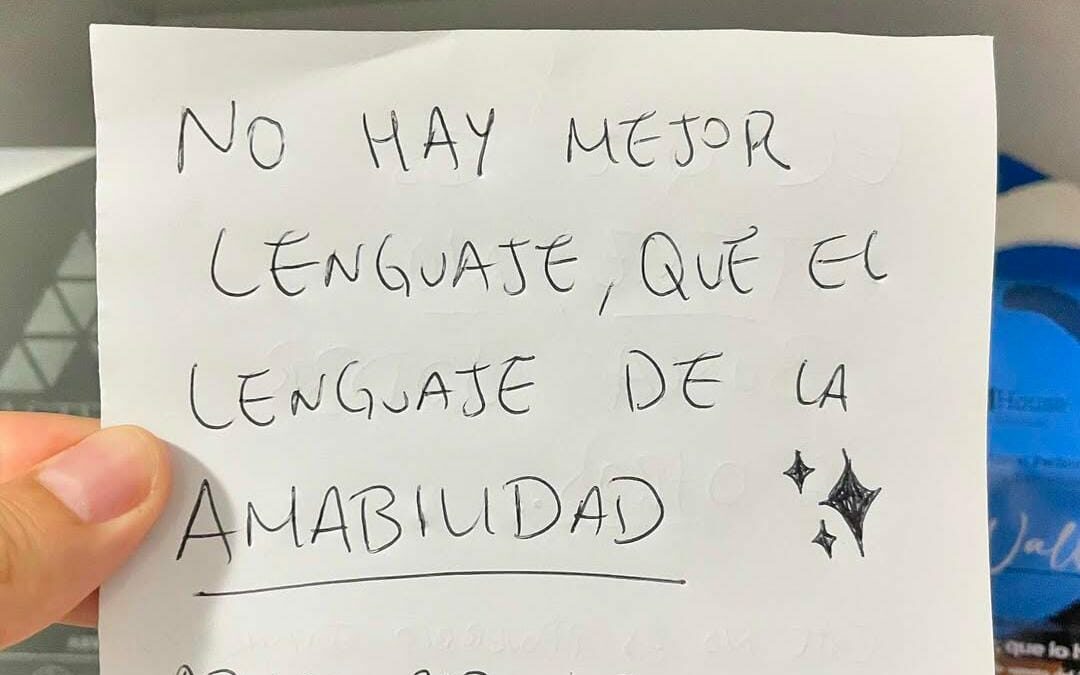 NO HAY MEJOR
LENGUAJE, QUE EL
LENGUAJE DE LA
AMABILIDAD
House
Wall
que lo